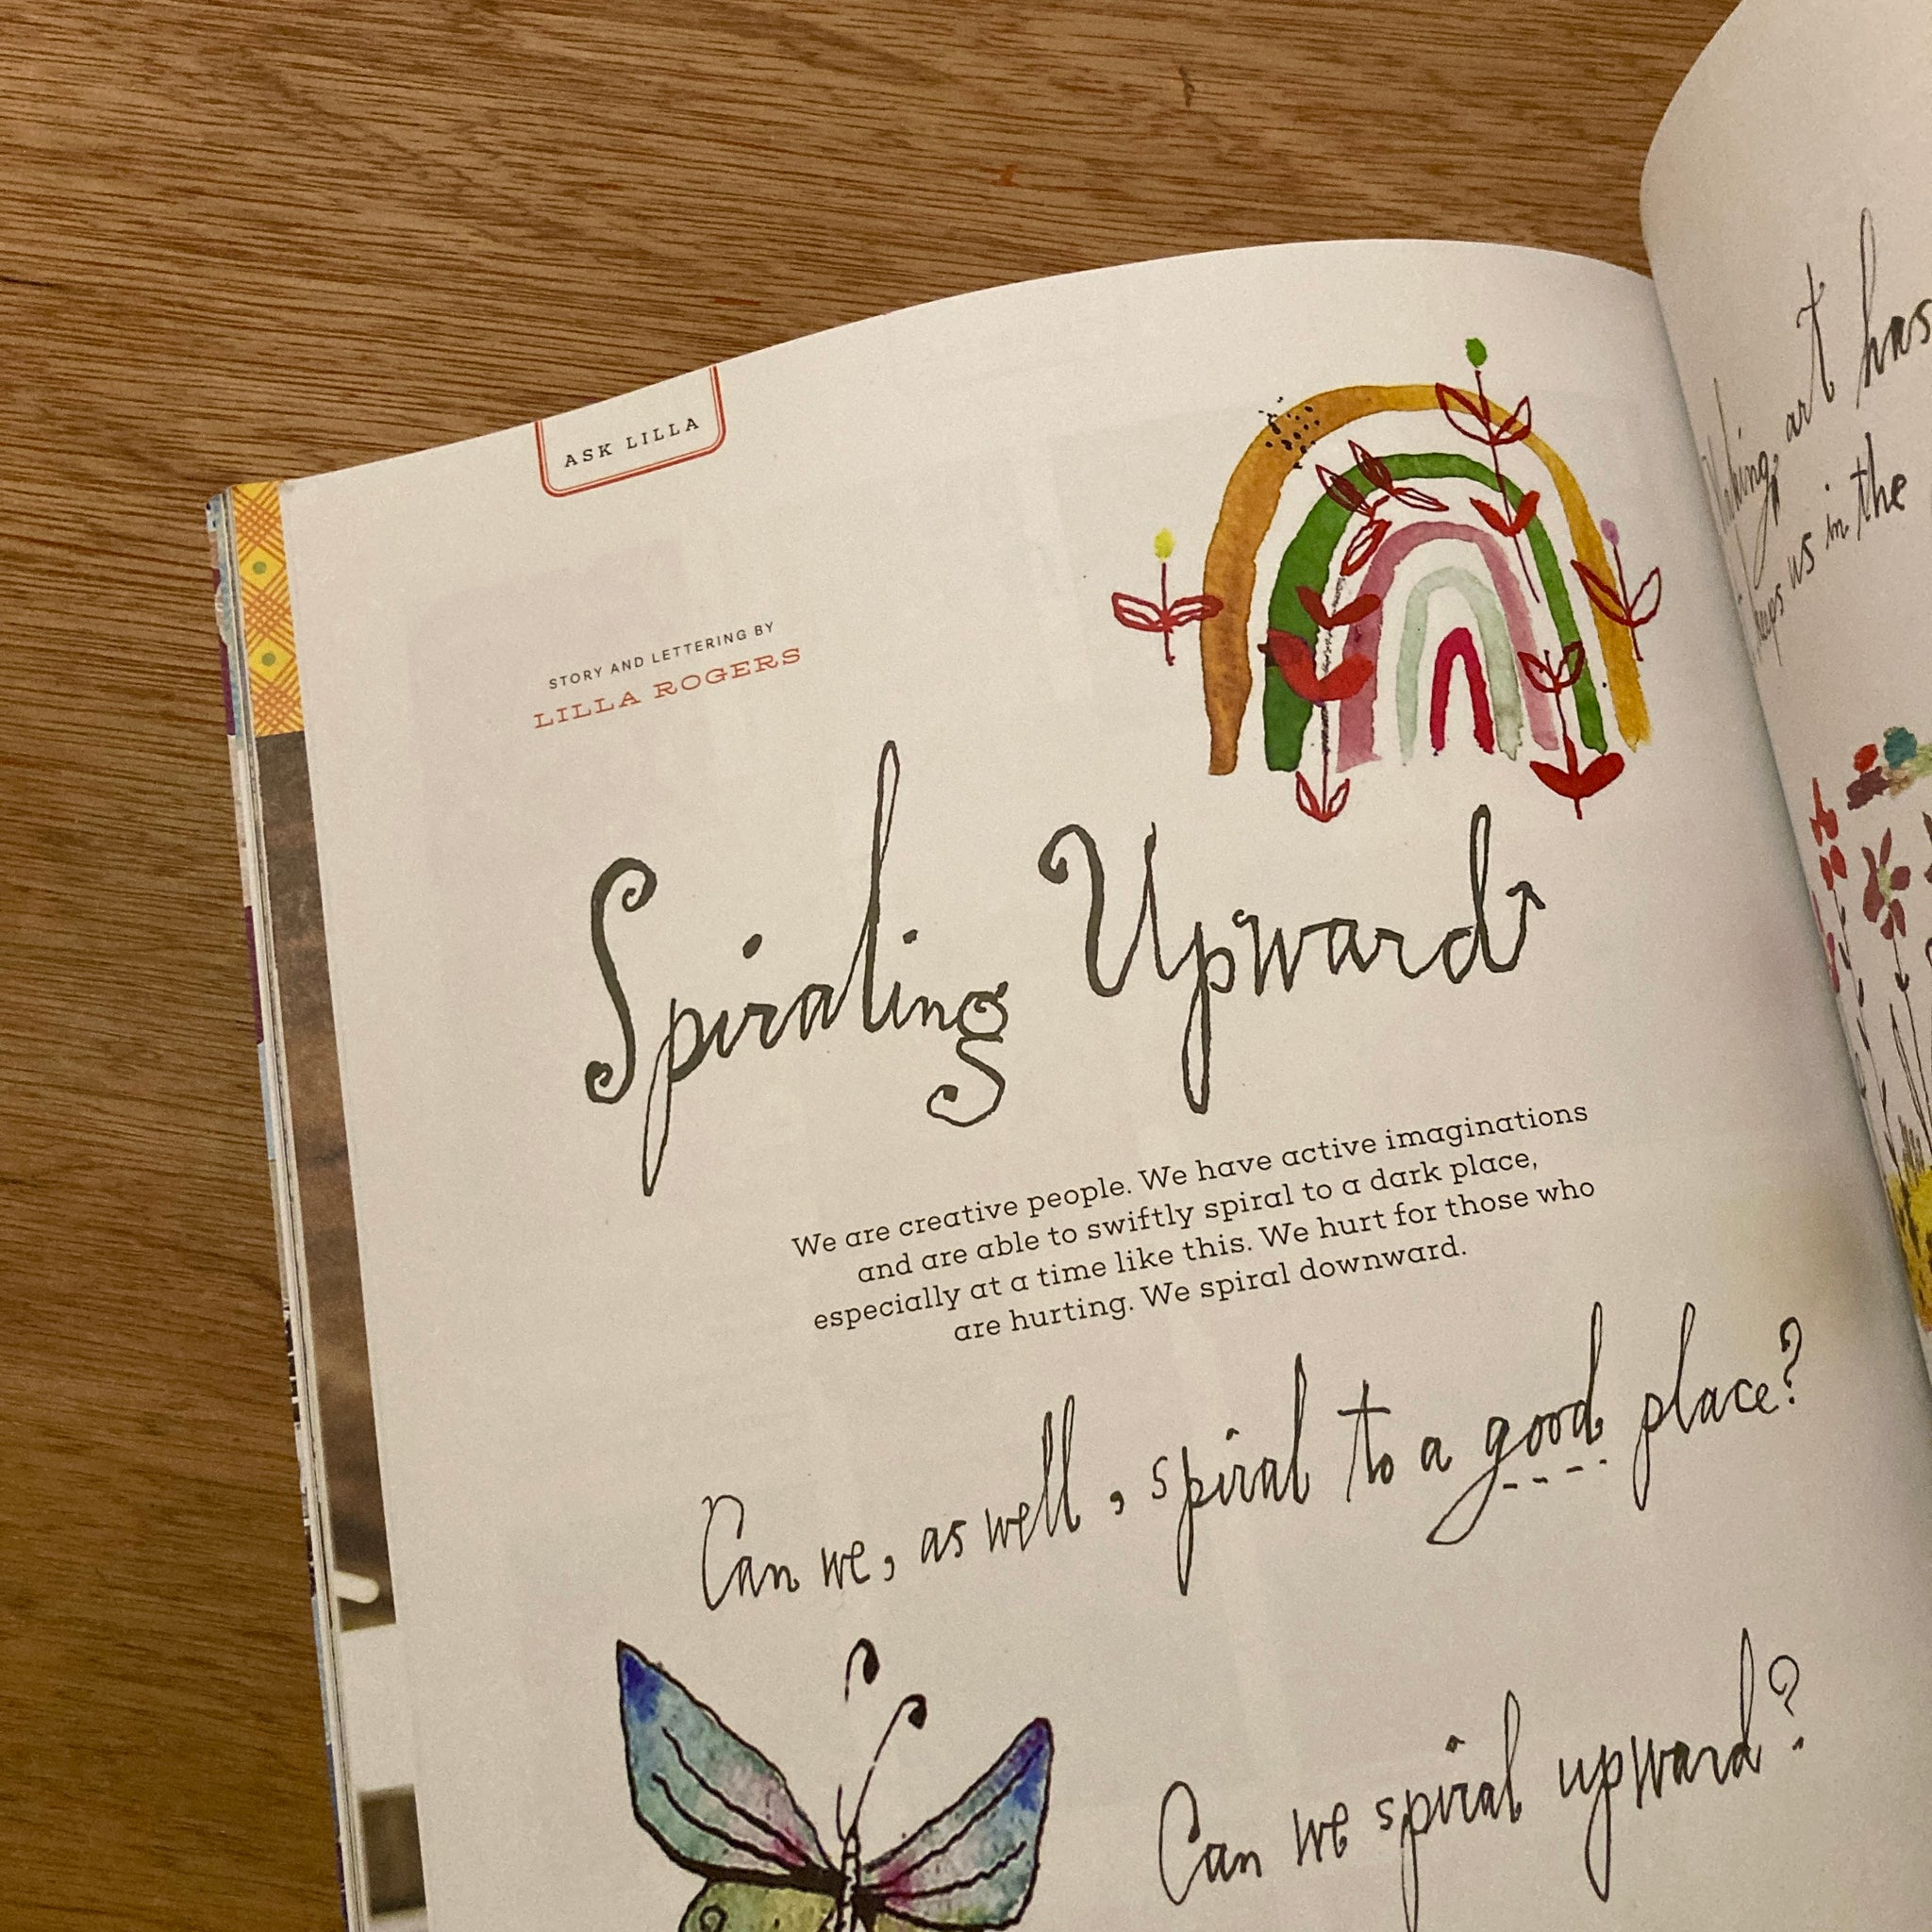 ASK LILLA
STORY AND LETTERING BY
LILLA ROGERS
Spiraling Upward
We are creative people. We have active imaginations
and are able to swiftly spiral to a dark place,
especially at a time like this. We hurt for those who
are hurting. We spiral downward.
Can we, as well, spiral to a good place?
Can we spiral upward?
Making art has
keeps us in the